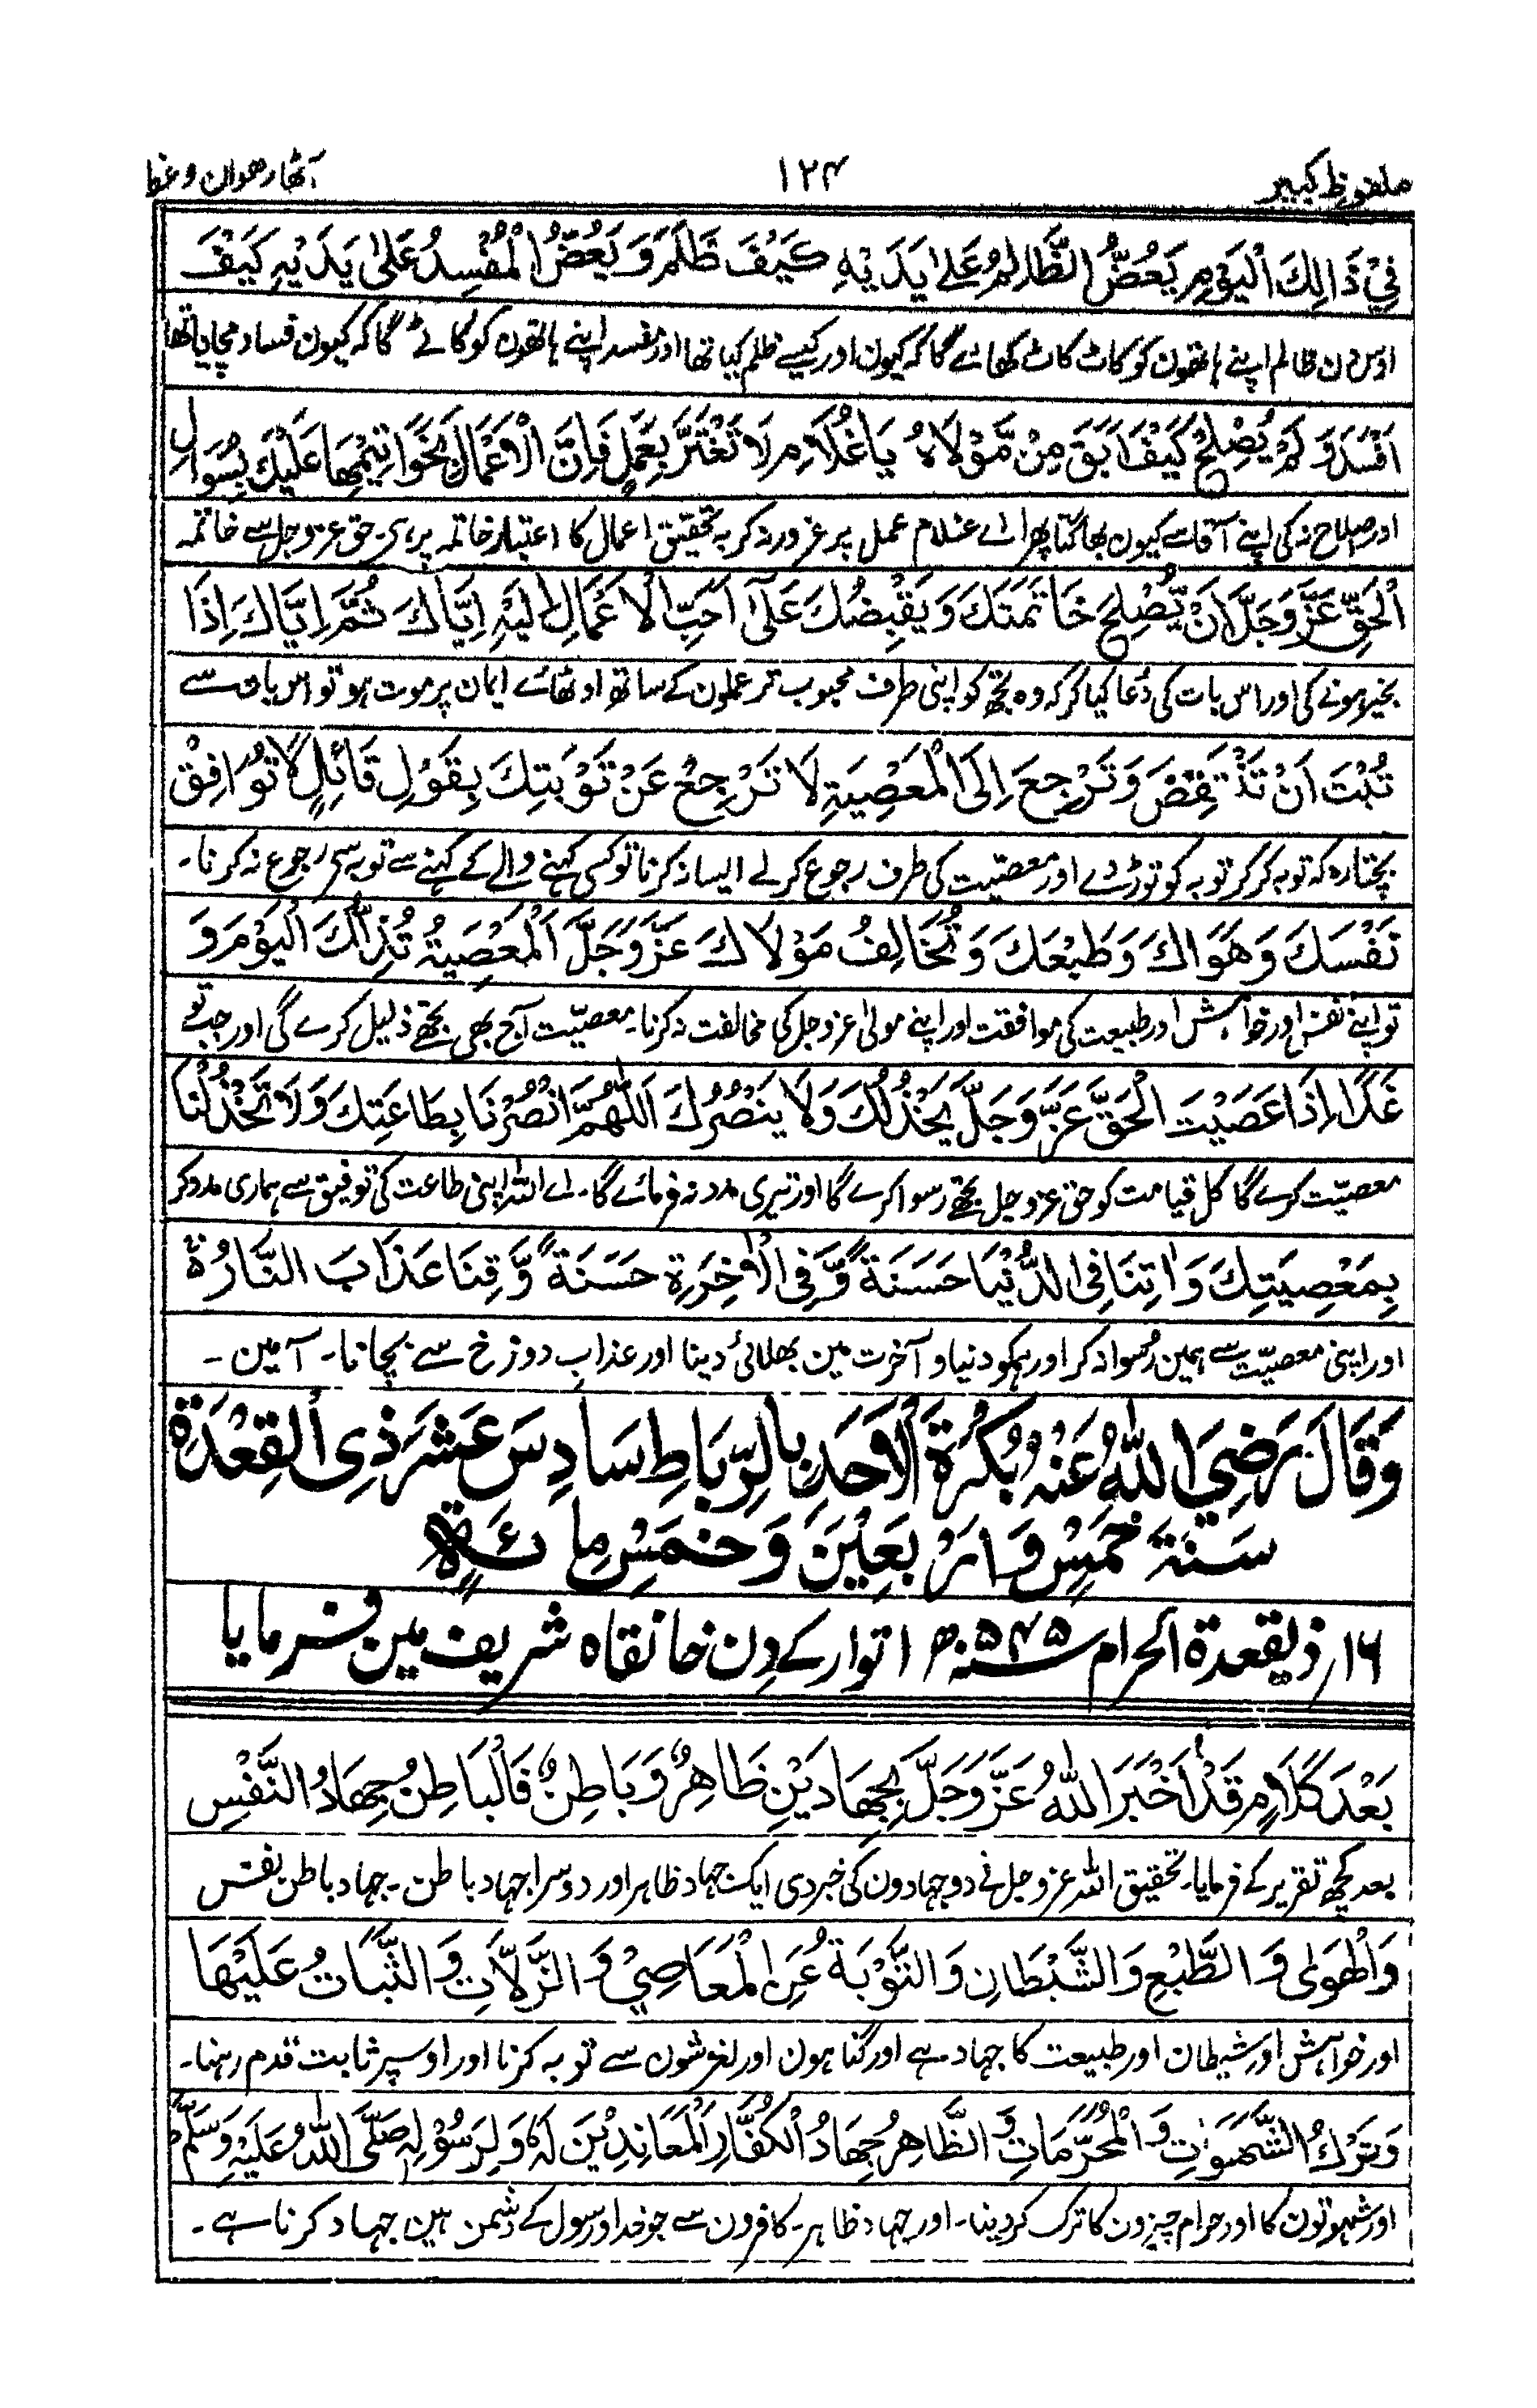 ملفوظ کبیر
۱۲۴
اٹھارھواں وعظ
فِيْ ذَالِكَ الْيَوْمِ يَعُضُّ الظَّالِمُ عَلٰى يَدَيْهِ كَيْفَ ظَلَمَ وَ يَعُضُّ الْمُفْسِدُ عَلٰى يَدَيْهِ كَيْفَ
اوس دن ظالم اپنے ہاتھون کو کاٹ کاٹ کھائے گا کہ کیون اور کیسے ظلم کیا تھا اور مفسد اپنے ہاتھون کو کاٹے گا کہ کیون فساد مچایا تھا
اَفْسَدَ وَ لَمْ يُصْلِحْ كَيْفَ اَبَقَ مِنْ مَّوْلَاهُ يَا غُلَامِ لَا تَغْتَرَّ بِعَمَلٍ فَاِنَّ الْاَعْمَالَ بِخَوَاتِيْمِهَا عَلَيْكَ بِسُوَالِ
اور صلاح نہ کی اپنے آقا سے کیون بھاگتا پھرا اے غلام عمل پر غرور نہ کر بہ تحقیق اعمال کا اعتبار خاتمہ پر ہی۔ حق عزوجل سے خاتمہ
الْحَقِّ عَزَّ وَجَلَّ اَنْ يُّصْلِحَ خَاتِمَتَكَ وَ يَقْبِضُكَ عَلٰى اَحَبِّ الْاَعْمَالِ اِلَيْهِ اِيَّاكَ ثُمَّ اِيَّاكَ اِذَا
بخیر ہونے کی اور اس بات کی دُعا کیا کر کہ وہ تجھ کو اپنی طرف محبوب تر عملون کے ساتھ اوٹھائے ایمان پر موت ہو تو اس بات سے
تُبْتَ اَنْ تَنْقُضَ وَ تَرْجِعَ اِلَى الْمَعْصِيَةِ لَا تَرْجِعْ عَنْ تَوْبَتِكَ بِقَوْلِ قَائِلٍ لَا تُوَافِقْ
بچتا رہ کہ توبہ کر کر توبہ کو توڑ دے اور معصیت کی طرف رجوع کر لے ایسا نہ کرنا تو کسی کہنے والے کے کہنے سے توبہ سے رجوع نہ کرنا۔
نَفْسَكَ وَ هَوَاكَ وَ طَبْعَكَ وَ تُخَالِفُ مَوْلَاكَ عَزَّ وَجَلَّ اَلْمَعْصِيَةُ تُذِلُّكَ الْيَوْمَ وَ
تو اپنے نفس اور خواہش اور طبیعت کی موافقت اور اپنے مولیٰ عزوجل کی مخالفت نہ کرنا۔ معصیّت آج بھی تجھے ذلیل کرے گی اور جب تو
غَدًا اِذَا عَصَيْتَ الْحَقَّ عَزَّ وَجَلَّ يَخْذُلُكَ وَلَا يَنْصُرُكَ اَللّٰهُمَّ انْصُرْنَا بِطَاعَتِكَ وَلَا تَخْذُلْنَا
معصیّت کرے گا کل قیامت کو حق عزوجل تجھے رسوا کرے گا اور تیری مدد نہ فرمائے گا۔ اے اللہ اپنی طاعت کی توفیق سے ہماری مدد کر
بِمَعْصِيَتِكَ وَ اٰتِنَا فِى الدُّنْيَا حَسَنَةً وَّ فِى الْاٰخِرَةِ حَسَنَةً وَّ قِنَا عَذَابَ النَّارِ
اور اپنی معصیّت سے ہمین رُسوا نہ کر اور ہمکو دنیا و آخرت مین بھلائی دینا اور عذاب دوزخ سے بچانا۔ آمین۔
وَقَالَ رَضِيَ اللّٰهُ عَنْهُ بُكْرَةَ الْاَحَدِ بِالرِّبَاطِ سَادِسَ عَشَرَ ذِى الْقِعْدَةِ
سَنَةَ خَمْسٍ وَ اَرْبَعِيْنَ وَ خَمْسِ مِائَةٍ
۱۶؍ ذیقعدۃ الحرام ۵۴۵ سنہ ھ اتوار کے دن خانقاہ شریف مین فرمایا
بَعْدَ كَلَامٍ قَدْ اَخْبَرَ اللّٰهُ عَزَّ وَجَلَّ بِجِهَادَيْنِ ظَاهِرٌ وَ بَاطِنٌ فَالْبَاطِنُ جِهَادُ النَّفْسِ
بعد کچھ تقریر کے فرمایا۔ تحقیق اللہ عزوجل نے دو جہادون کی خبر دی ایک جہاد ظاہر اور دوسرا جہاد باطن۔ جہاد باطن نفس
وَالْهَوٰى وَ الطَّبْعِ وَ الشَّيْطَانِ وَ التَّوْبَةُ عَنِ الْمَعَاصِيْ وَ الزَّلَّاتِ وَ الثَّبَاتُ عَلَيْهَا
اور خواہش اور شیطان اور طبیعت کا جہاد ہے اور گناہون اور لغزشون سے توبہ کرنا اور اوسپر ثابت قدم رہنا۔
وَ تَرْكُ الشَّهَوٰتِ وَ الْمُحَرَّمَاتِ وَ الظَّاهِرُ جِهَادُ الْكُفَّارِ الْمُعَانِدِيْنَ لَهٗ وَ لِرَسُوْلِهٖ صَلَّى اللّٰهُ عَلَيْهِ وَسَلَّمَ
اور شہوتون کا اور حرام چیزون کا ترک کر دینا۔ اور جہاد ظاہر۔ کافرون سے جو خدا و رسول کے دشمن ہین جہاد کرنا ہے۔